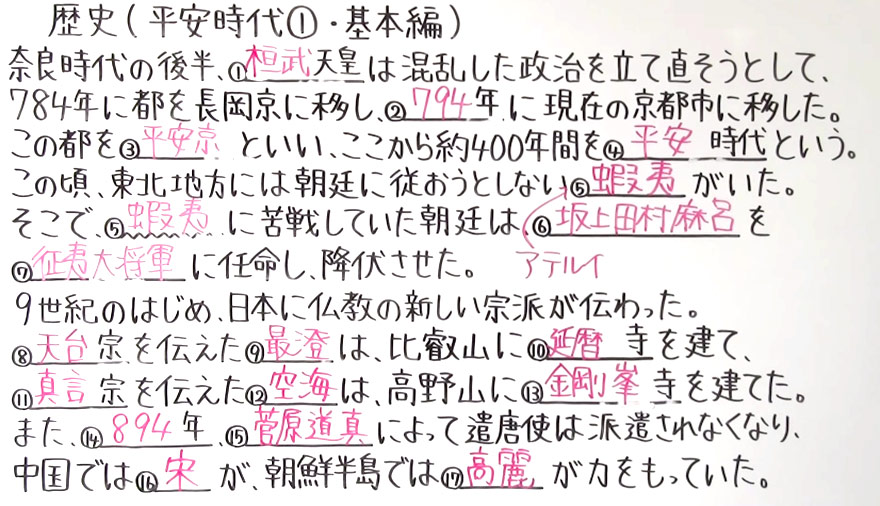 歴史(平安時代①・基本編)
奈良時代の後半、①桓武天皇は混乱した政治を立て直そうとして、
784年に都を長岡京に移し、②794年に現在の京都市に移した。
この都を③平安京といい、ここから約400年間を④平安時代という。
この頃、東北地方には朝廷に従おうとしない⑤蝦夷がいた。
そこで、⑤蝦夷に苦戦していた朝廷は、⑥坂上田村麻呂を
⑦征夷大将軍に任命し、降伏させた。 アテルイ
9世紀のはじめ、日本に仏教の新しい宗派が伝わった。
⑧天台宗を伝えた⑨最澄は、比叡山に⑩延暦寺を建て、
⑪真言宗を伝えた⑫空海は、高野山に⑬金剛峯寺を建てた。
また、⑭894年、⑮菅原道真によって遣唐使は派遣されなくなり、
中国では⑯宋が、朝鮮半島では⑰高麗が力をもっていた。